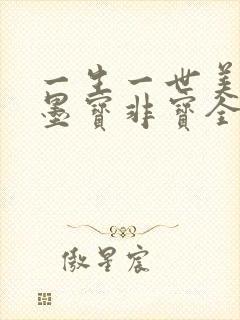 一生一世美
墨宝非宝全
傲星宸